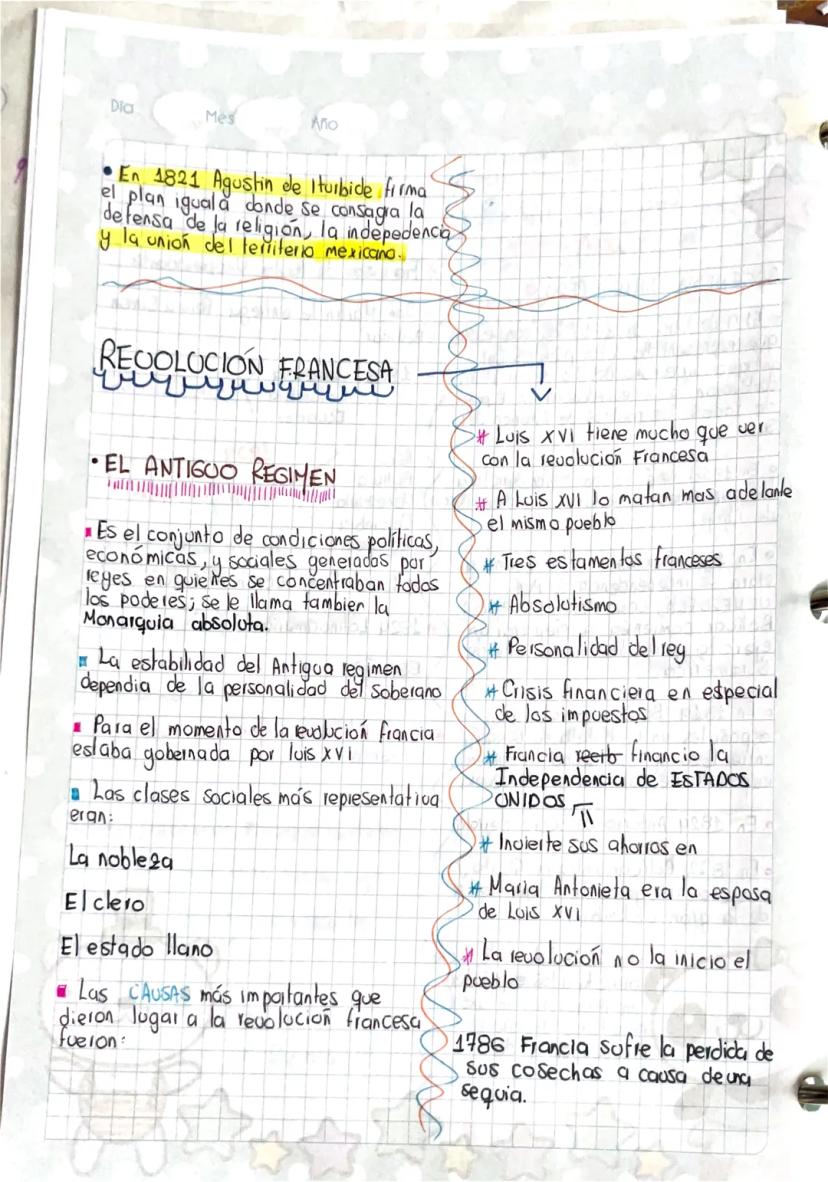 Día
Mes
Año
• En 1821 Agustin de Iturbide firma
el plan iguala donde se consagra la
defensa de la religión, la indepedencia
y la unión del territerio mexicano.
REVOLUCIÓN FRANCESA
• EL ANTIGUO REGIMEN
Es el conjunto de condiciones políticas,
económicas, y sociales generadas por
reyes en quienes se concentraban todos
los poderes; se le llama tambien la
Monarquia absoluta.
La estabilidad del Antigua regimen
dependia de la personalidad del Soberano
Para el momento de la revolución francia
estaba gobernada por luis XVI
Las clases sociales más representativa
eran:
La nobleza
El clero
El estado llano
Las CAUSAS más importantes que
dieron lugar a la revolución francesa
fueron:
# Luis XVI tiene mucho que ver
con la revolución Francesa
# A Luis XVI lo matan mas adelante
el mismo pueblo
# Tres estamentos franceses
# Absolutismo
# Personalidad del rey
# Crisis financiera en especial
de los impuestos
# Francia financio la
Independencia de ESTADOS
UNIDOS
# Invierte sus ahorros en
# Maria Antonieta era la esposa
de Luis XVI
# La revolución no la inicio el
pueblo
1786 Francia sufre la perdida de
sus cosechas a causa de una
sequia.